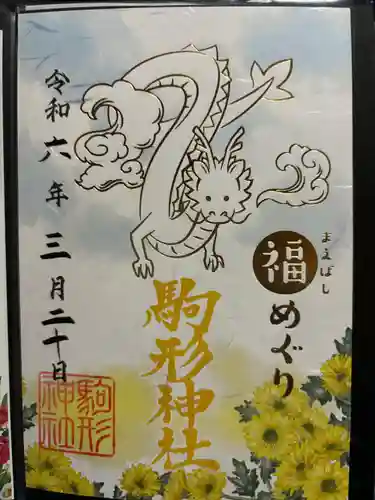 まえばし
福めぐり
駒形神社
令和六年三月二十日
駒形
神社